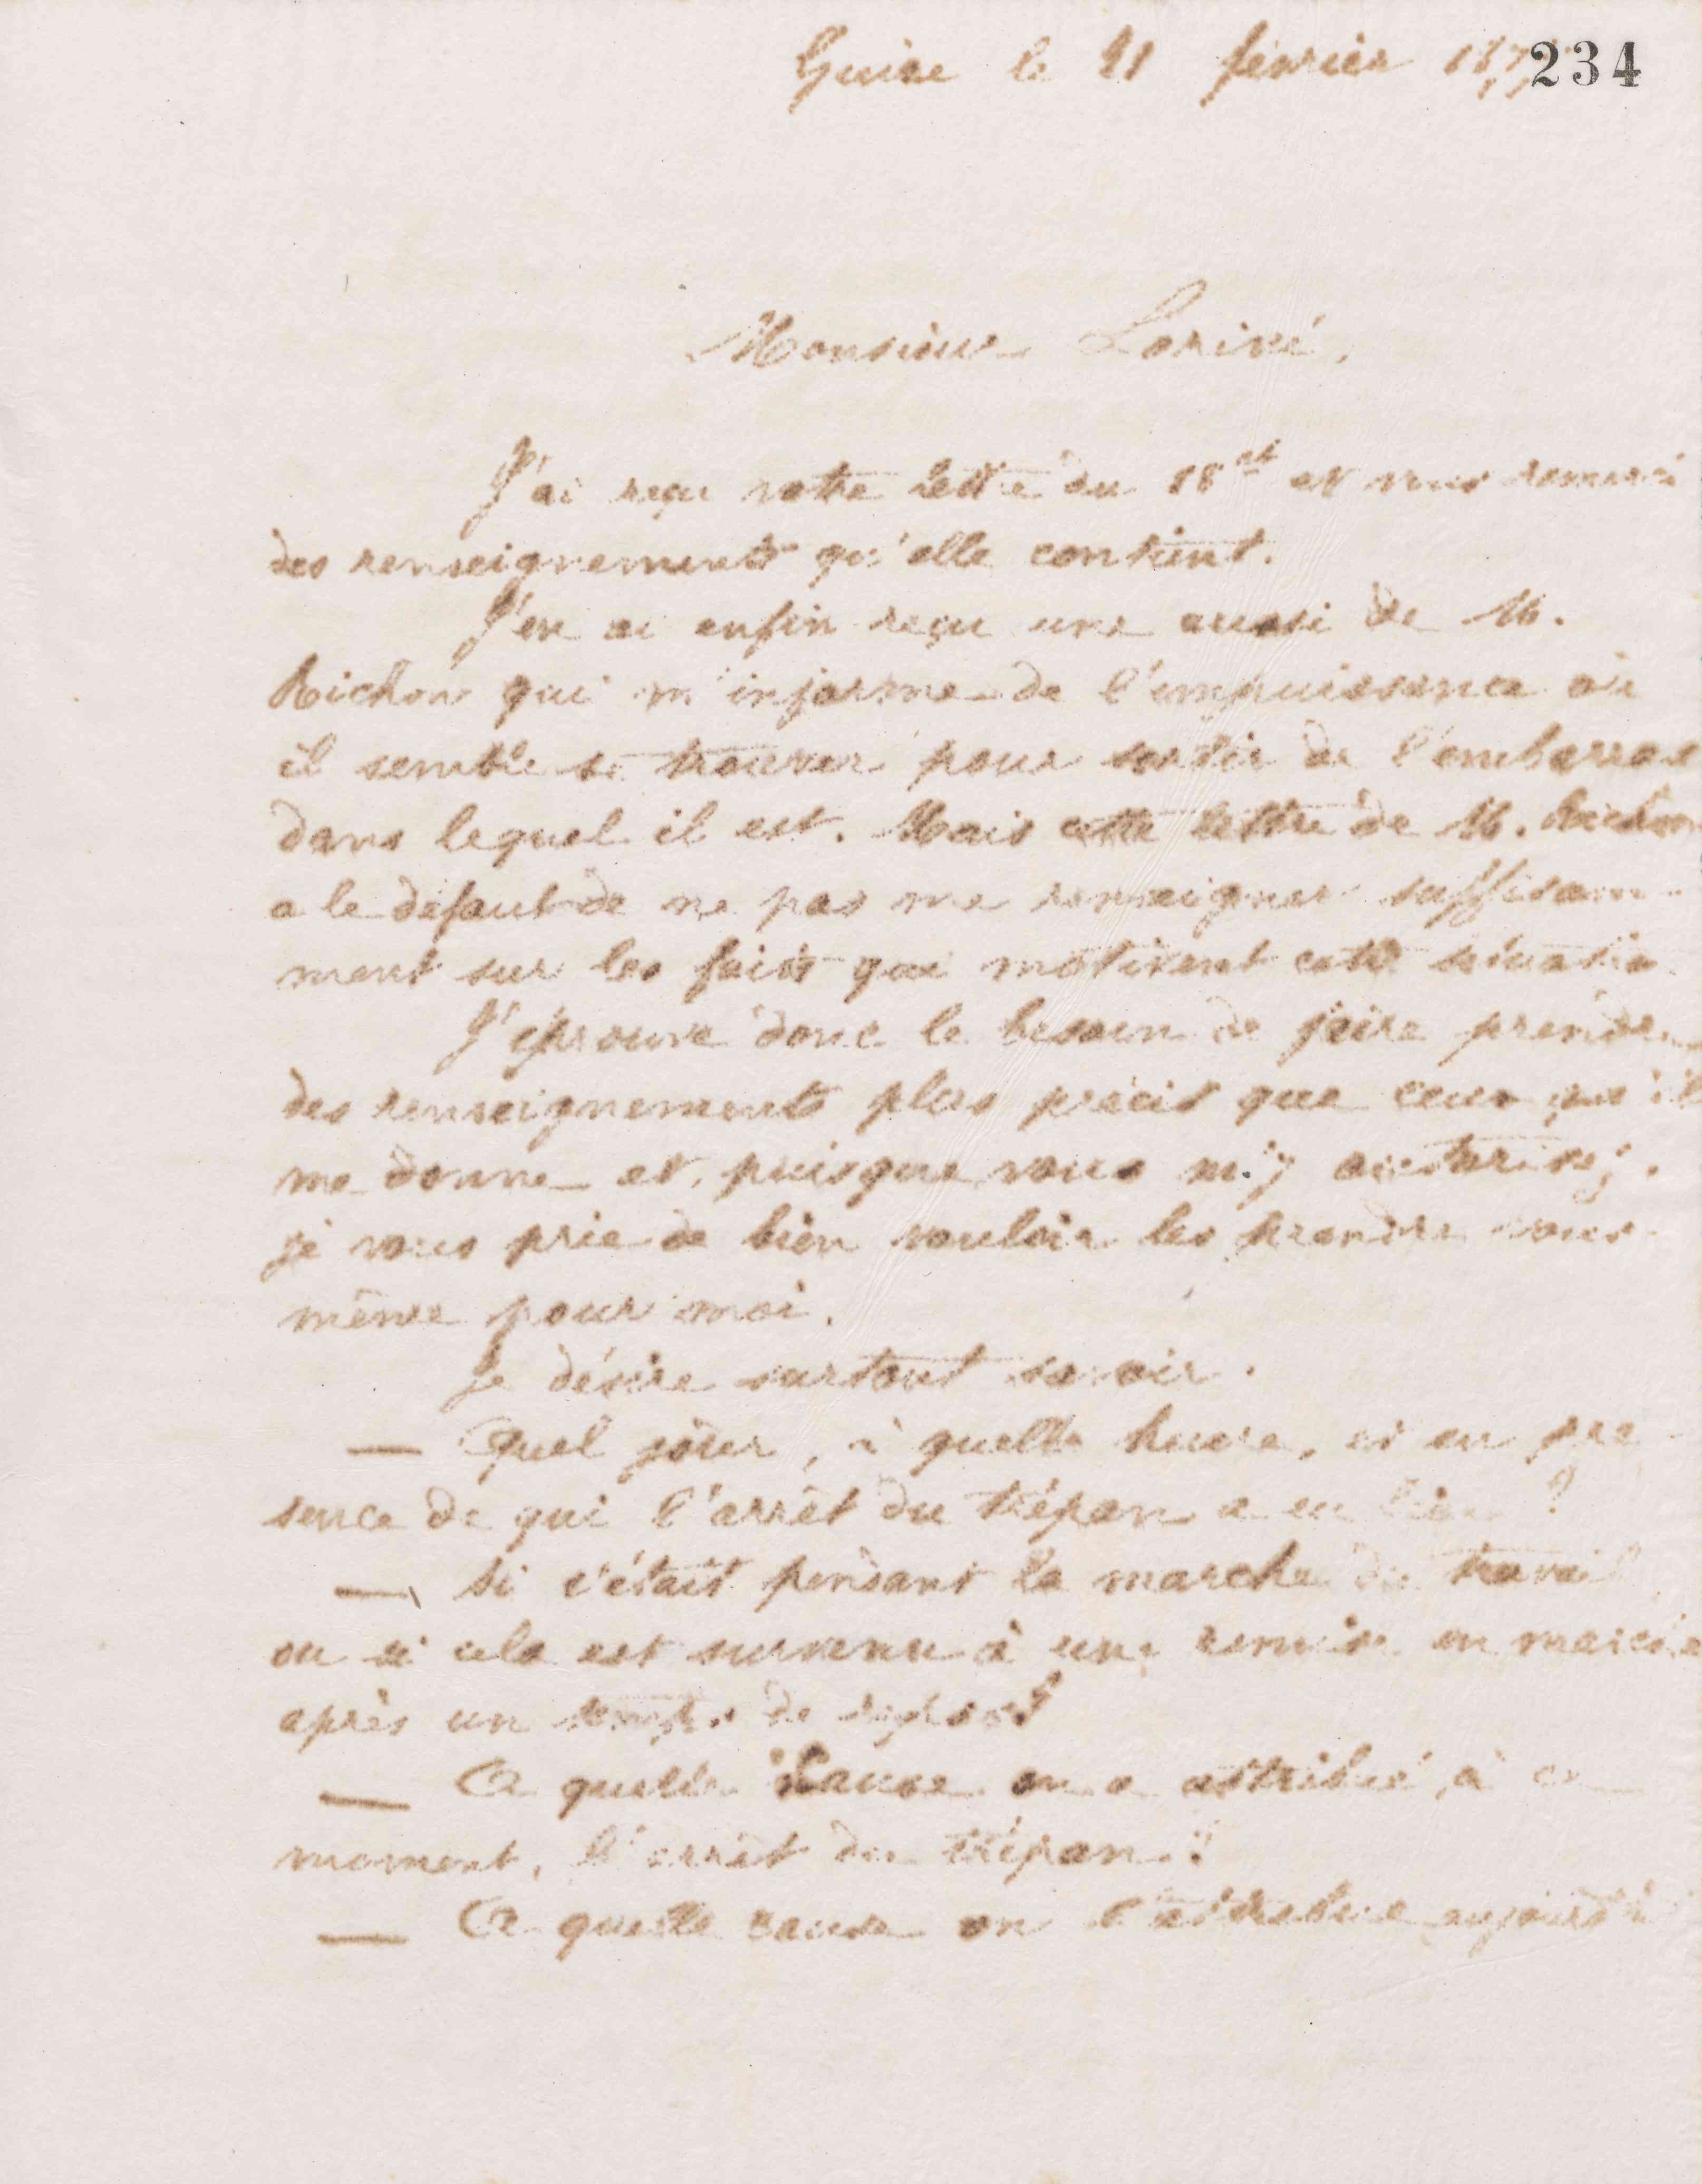 Guise le 21 février 187
234
Monsieur Loriné,
J'ai reçu votre lettre du 18 ct et vous remercie
des renseignements qu'elle contient.
J'en ai enfin reçu une aussi de M.
Richon qui m'informe de l'impuissance où
il semble se trouver pour sortir de l'embarras
dans lequel il est. Mais cette lettre de M. Richon
a le défaut de ne pas me renseigner suffisam-
ment sur les faits qui motivent cette situation.
J'éprouve donc le besoin de faire prendre
des renseignements plus précis que ceux qu'il
me donne et, puisque vous m'y autorisez,
je vous prie de bien vouloir les prendre vous-
même pour moi.
Je désire surtout savoir.
— Quel jour, à quelle heure, et en pré
sence de qui l'arrêt du trépan a eu lieu ?
— Si c'était pendant la marche du travail
ou si cela est survenu à une remise en marche
après un temps de repos ?
— A quelle cause on a attribué, à ce
moment, l'arrêt du trépan ?
— A quelle cause on l'attribue aujourd'hui